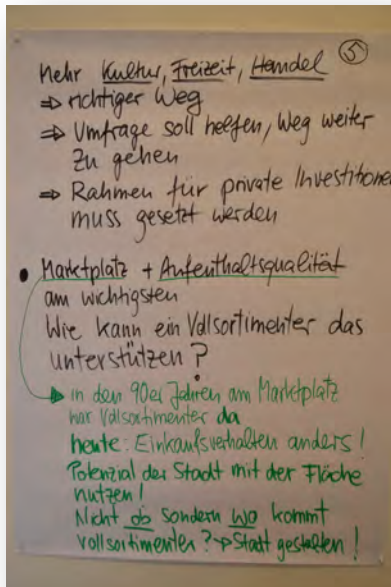 5
Mehr Kultur, Freizeit, Handel
⇒ richtiger Weg
⇒ Umfrage soll helfen, Weg weiter
zu gehen
⇒ Rahmen für private Investitionen
muss gesetzt werden
• Marktplatz + Aufenthaltsqualität
am wichtigsten
Wie kann ein Vollsortimenter das
unterstützen?
in den 90er Jahren am Marktplatz
war Vollsortimenter da
heute: Einkaufsverhalten anders!
Potenzial der Stadt mit der Fläche
nutzen!
Nicht ob sondern wo kommt
Vollsortimenter? → Stadt gestalten!